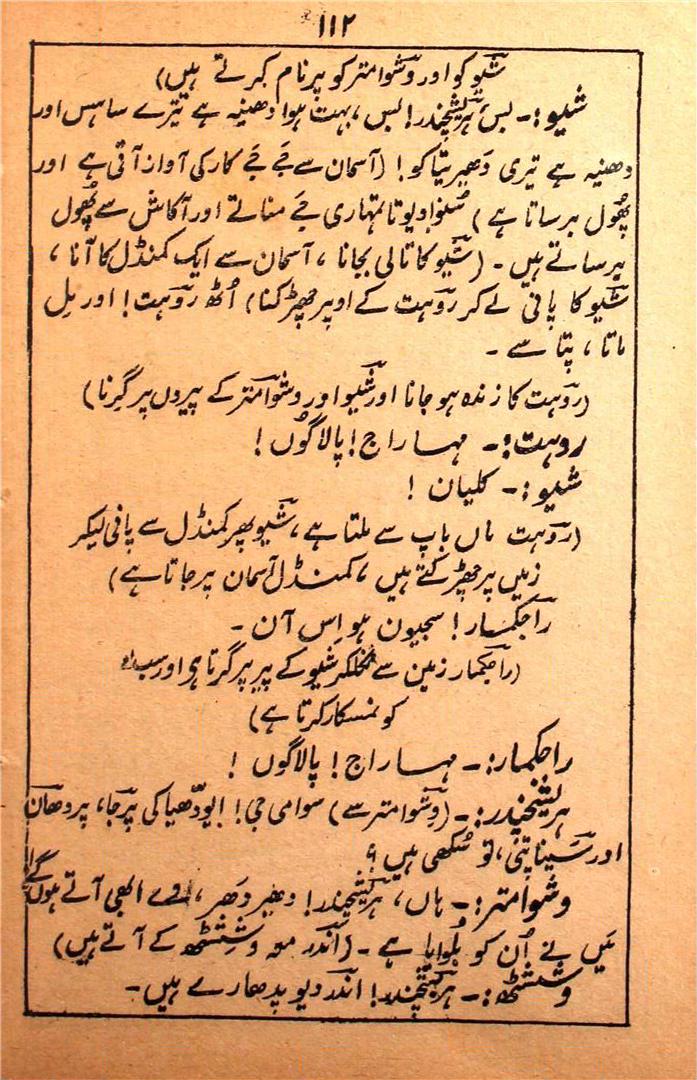 ۱۱۲
شیو کو اور وشوامتر کو پرنام کرتے ہیں)
شیو:۔ بس، ہریشچندر! بس، بہت ہوا دھنیہ ہے تیرے ساہس اور
دھنیہ ہے تیری دَھیریتا کو! (آسمان سے جَے جَے کار کی آواز آتی ہے اور
پھُول برساتا ہے) سُنو! دیوتا تمہاری جَے مناتے اور آکاش سے پھُول
برساتے ہیں۔ (شیو کا تالی بجانا، آسمان سے ایک کمنڈل کا آنا،
شیو کا پانی لے کر روہت کے اوپر چھڑکنا) اُٹھ روہت! اور مِل
ماتا، پتا سے۔
(روہت کا زندہ ہو جانا اور شیو اور وشوامتر کے پیروں پر گِرنا)
روہت:۔ مہاراج! پالاگوں!
شیو:۔ کلیان!
(روہت ماں باپ سے ملتا ہے، شیو پھر کمنڈل سے پانی لیکر
زمیں پر چھڑکتے ہیں، کمنڈل آسمان پر جاتا ہے)
راجکمار! سجیون ہو اِس آن۔
(راجکمار زمین سے نکلکر شیو کے پیر پر گرتا ہی اور سب
کو نمسکار کرتا ہے)
راجکمار:۔ مہاراج! پالاگوں!
ہریشچندر:۔ (وشوامتر سے) سوامی جی! ایودّھیا کی پرجا، پردھان
اور سیناپتی، تو سُکھی ہیں؟
وشوامتر:۔ ہاں، ہریشچندر! دھیر دھر، وے ابھی آتے ہوں گے
میں نے اُن کو بُلوایا ہے۔ (اندر معہ وششٹھ کے آتے ہیں)
وششٹھ:۔ ہریشچندر! اندر دیو پدھارے ہیں۔